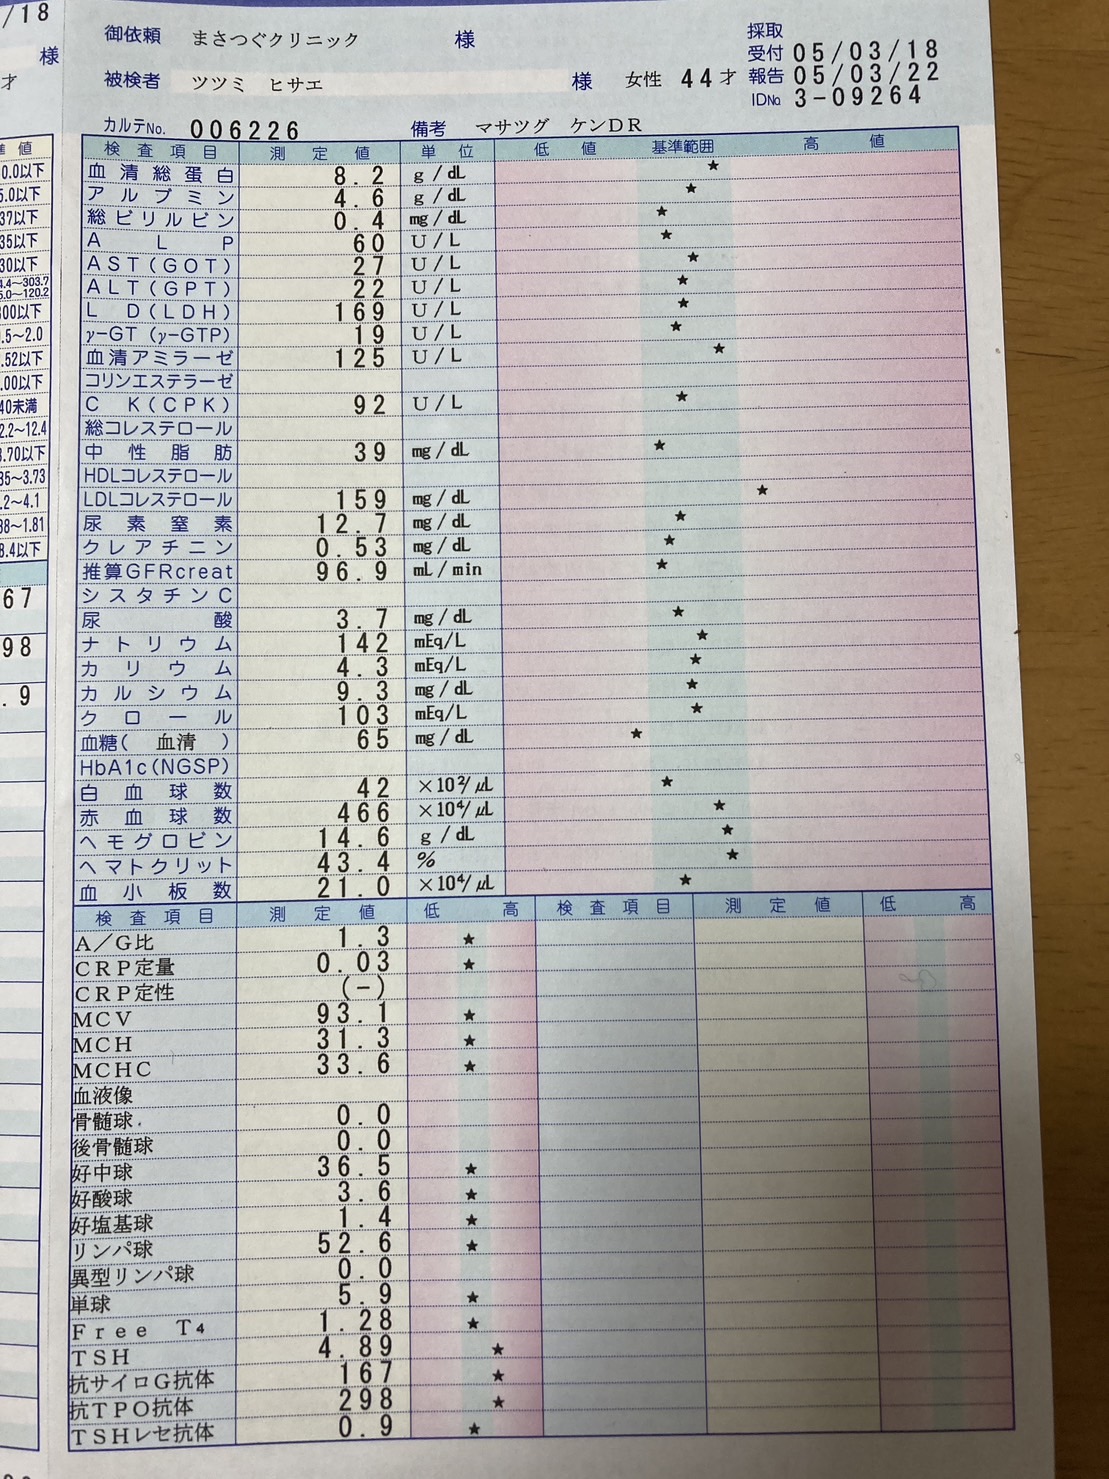 /18
様
才
準値
0.0以下
5.0以下
37以下
35以下
30以下
4.4～303.7
5.0～120.2
00以下
.5～2.0
.52以下
.00以下
40未満
2.2～12.4
3.70以下
35～3.73
.2～4.1
88～1.81
8.4以下
67
98
.9
御依頼 まさつぐクリニック 様
採取
受付 05/03/18
被検者 ツツミ ヒサエ 様 女性 44才 報告 05/03/22
IDNo. 3-09264
カルテNo. 006226 備考 マサツグ ケンDR
検査項目 測定値 単位 低値 基準範囲 高値
血清総蛋白 8.2 g/dL ★
アルブミン 4.6 g/dL ★
総ビリルビン 0.4 mg/dL ★
ALP 60 U/L ★
AST(GOT) 27 U/L ★
ALT(GPT) 22 U/L ★
LD(LDH) 169 U/L ★
γ-GT(γ-GTP) 19 U/L ★
血清アミラーゼ 125 U/L ★
コリンエステラーゼ
CK(CPK) 92 U/L ★
総コレステロール
中性脂肪 39 mg/dL ★
HDLコレステロール
LDLコレステロール 159 mg/dL ★
尿素窒素 12.7 mg/dL ★
クレアチニン 0.53 mg/dL ★
推算GFRcreat 96.9 mL/min ★
シスタチンC
尿酸 3.7 mg/dL ★
ナトリウム 142 mEq/L ★
カリウム 4.3 mEq/L ★
カルシウム 9.3 mg/dL ★
クロール 103 mEq/L ★
血糖(血清) 65 mg/dL ★
HbA1c(NGSP)
白血球数 42 ×10²/μL ★
赤血球数 466 ×10⁴/μL ★
ヘモグロビン 14.6 g/dL ★
ヘマトクリット 43.4 % ★
血小板数 21.0 ×10⁴/μL ★
検査項目 測定値 低 高 検査項目 測定値 低 高
A／G比 1.3 ★
CRP定量 0.03 ★
CRP定性 (-)
MCV 93.1 ★
MCH 31.3 ★
MCHC 33.6 ★
血液像
骨髄球 0.0
後骨髄球 0.0
好中球 36.5 ★
好酸球 3.6 ★
好塩基球 1.4 ★
リンパ球 52.6 ★
異型リンパ球 0.0
単球 5.9 ★
Free T4 1.28 ★
TSH 4.89 ★
抗サイログ抗体 167 ★
抗TPO抗体 298 ★
TSHレセ抗体 0.9 ★